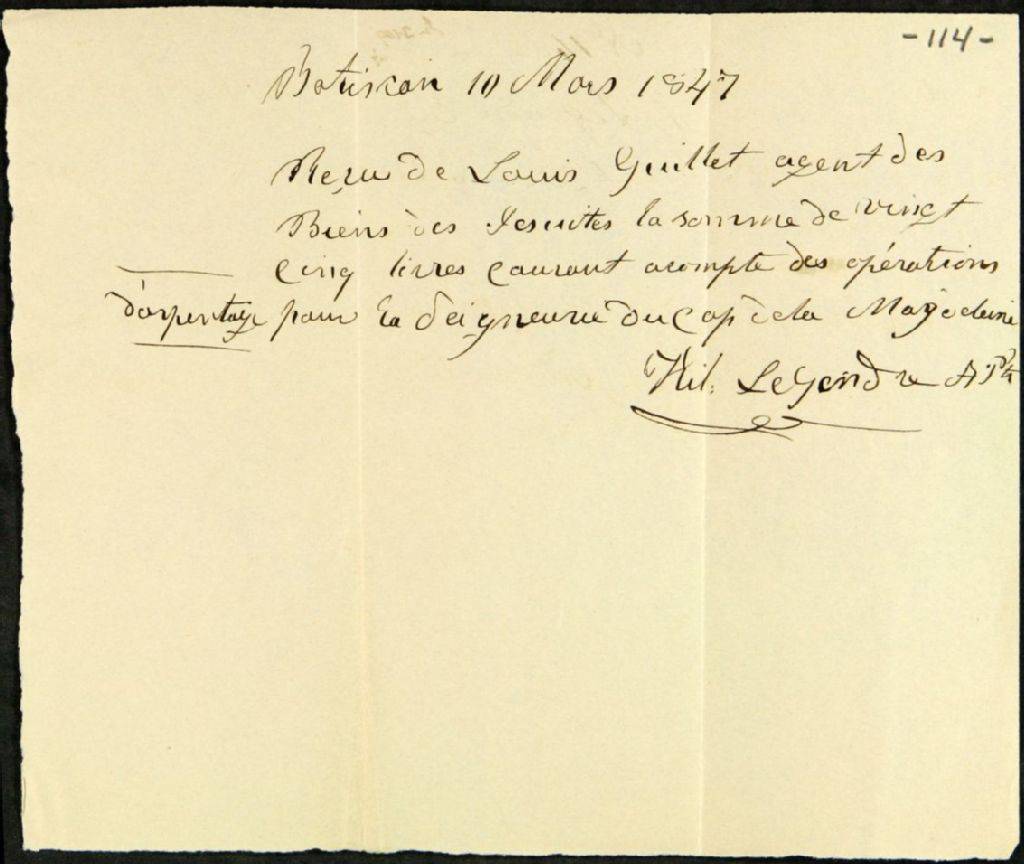 - 114 -
Batiscan 10 Mars 1847
Reçu de Louis Guillet agent des
Biens des Jesuites la somme de vingt
cinq livres courant acompte des opérations
d'arpentage pour la Seigneurie du Cap de la Magdeleine
Hil. LeGendre